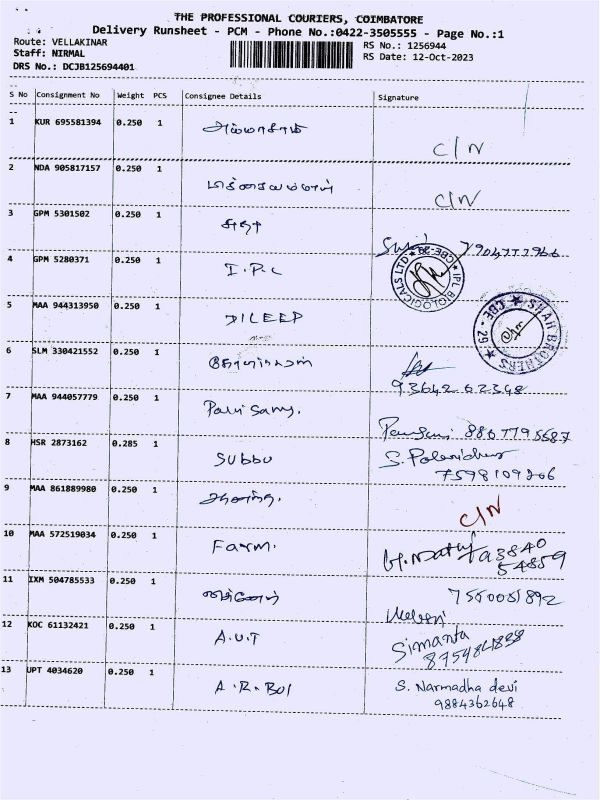 THE PROFESSIONAL COURIERS, COIMBATORE
Delivery Runsheet - PCM - Phone No.:0422-3505555 - Page No.:1
Route: VELLAKINAR
Staff: NIRMAL
DRS No.: DCJB125694401
RS No.: 1256944
RS Date: 12-Oct-2023
S No Consignment No Weight PCS Consignee Details Signature
1 KUR 695581394 0.250 1
C/N
2 NDA 905817157 0.250 1
C/N
3 GPM 5301502 0.250 1 சுதா
7904777966
4 GPM 5280371 0.250 1 I.P.L
IPL BIOLOGICALS LTD ★ CBE-29 ★
5 MAA 944313950 0.250 1 DILEEP
SHAH BROTHERS ★ CBE - 29 ★
6 SLM 330421552 0.250 1
93642 62348
7 MAA 944057779 0.250 1 Palni Samy.
8867795687
8 HSR 2873162 0.285 1 SUBBU
7598109206
9 MAA 861889980 0.250 1
C/N
10 MAA 572519034 0.250 1 Farm.
93840
54859
11 IXM 504785533 0.250 1
7550051892
12 KOC 61132421 0.250 1 A.U.T
Simanta
13 UPT 4034620 0.250 1 A.R.BOI
S. Narmadha devi
9884362648